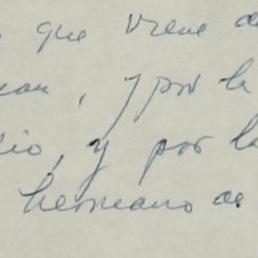 que viene de
, y por la
dio, y por la
hermano de